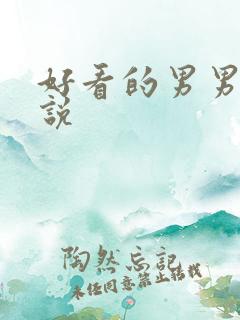 好看的男男
說
陶然忘記
未经同意禁止转载